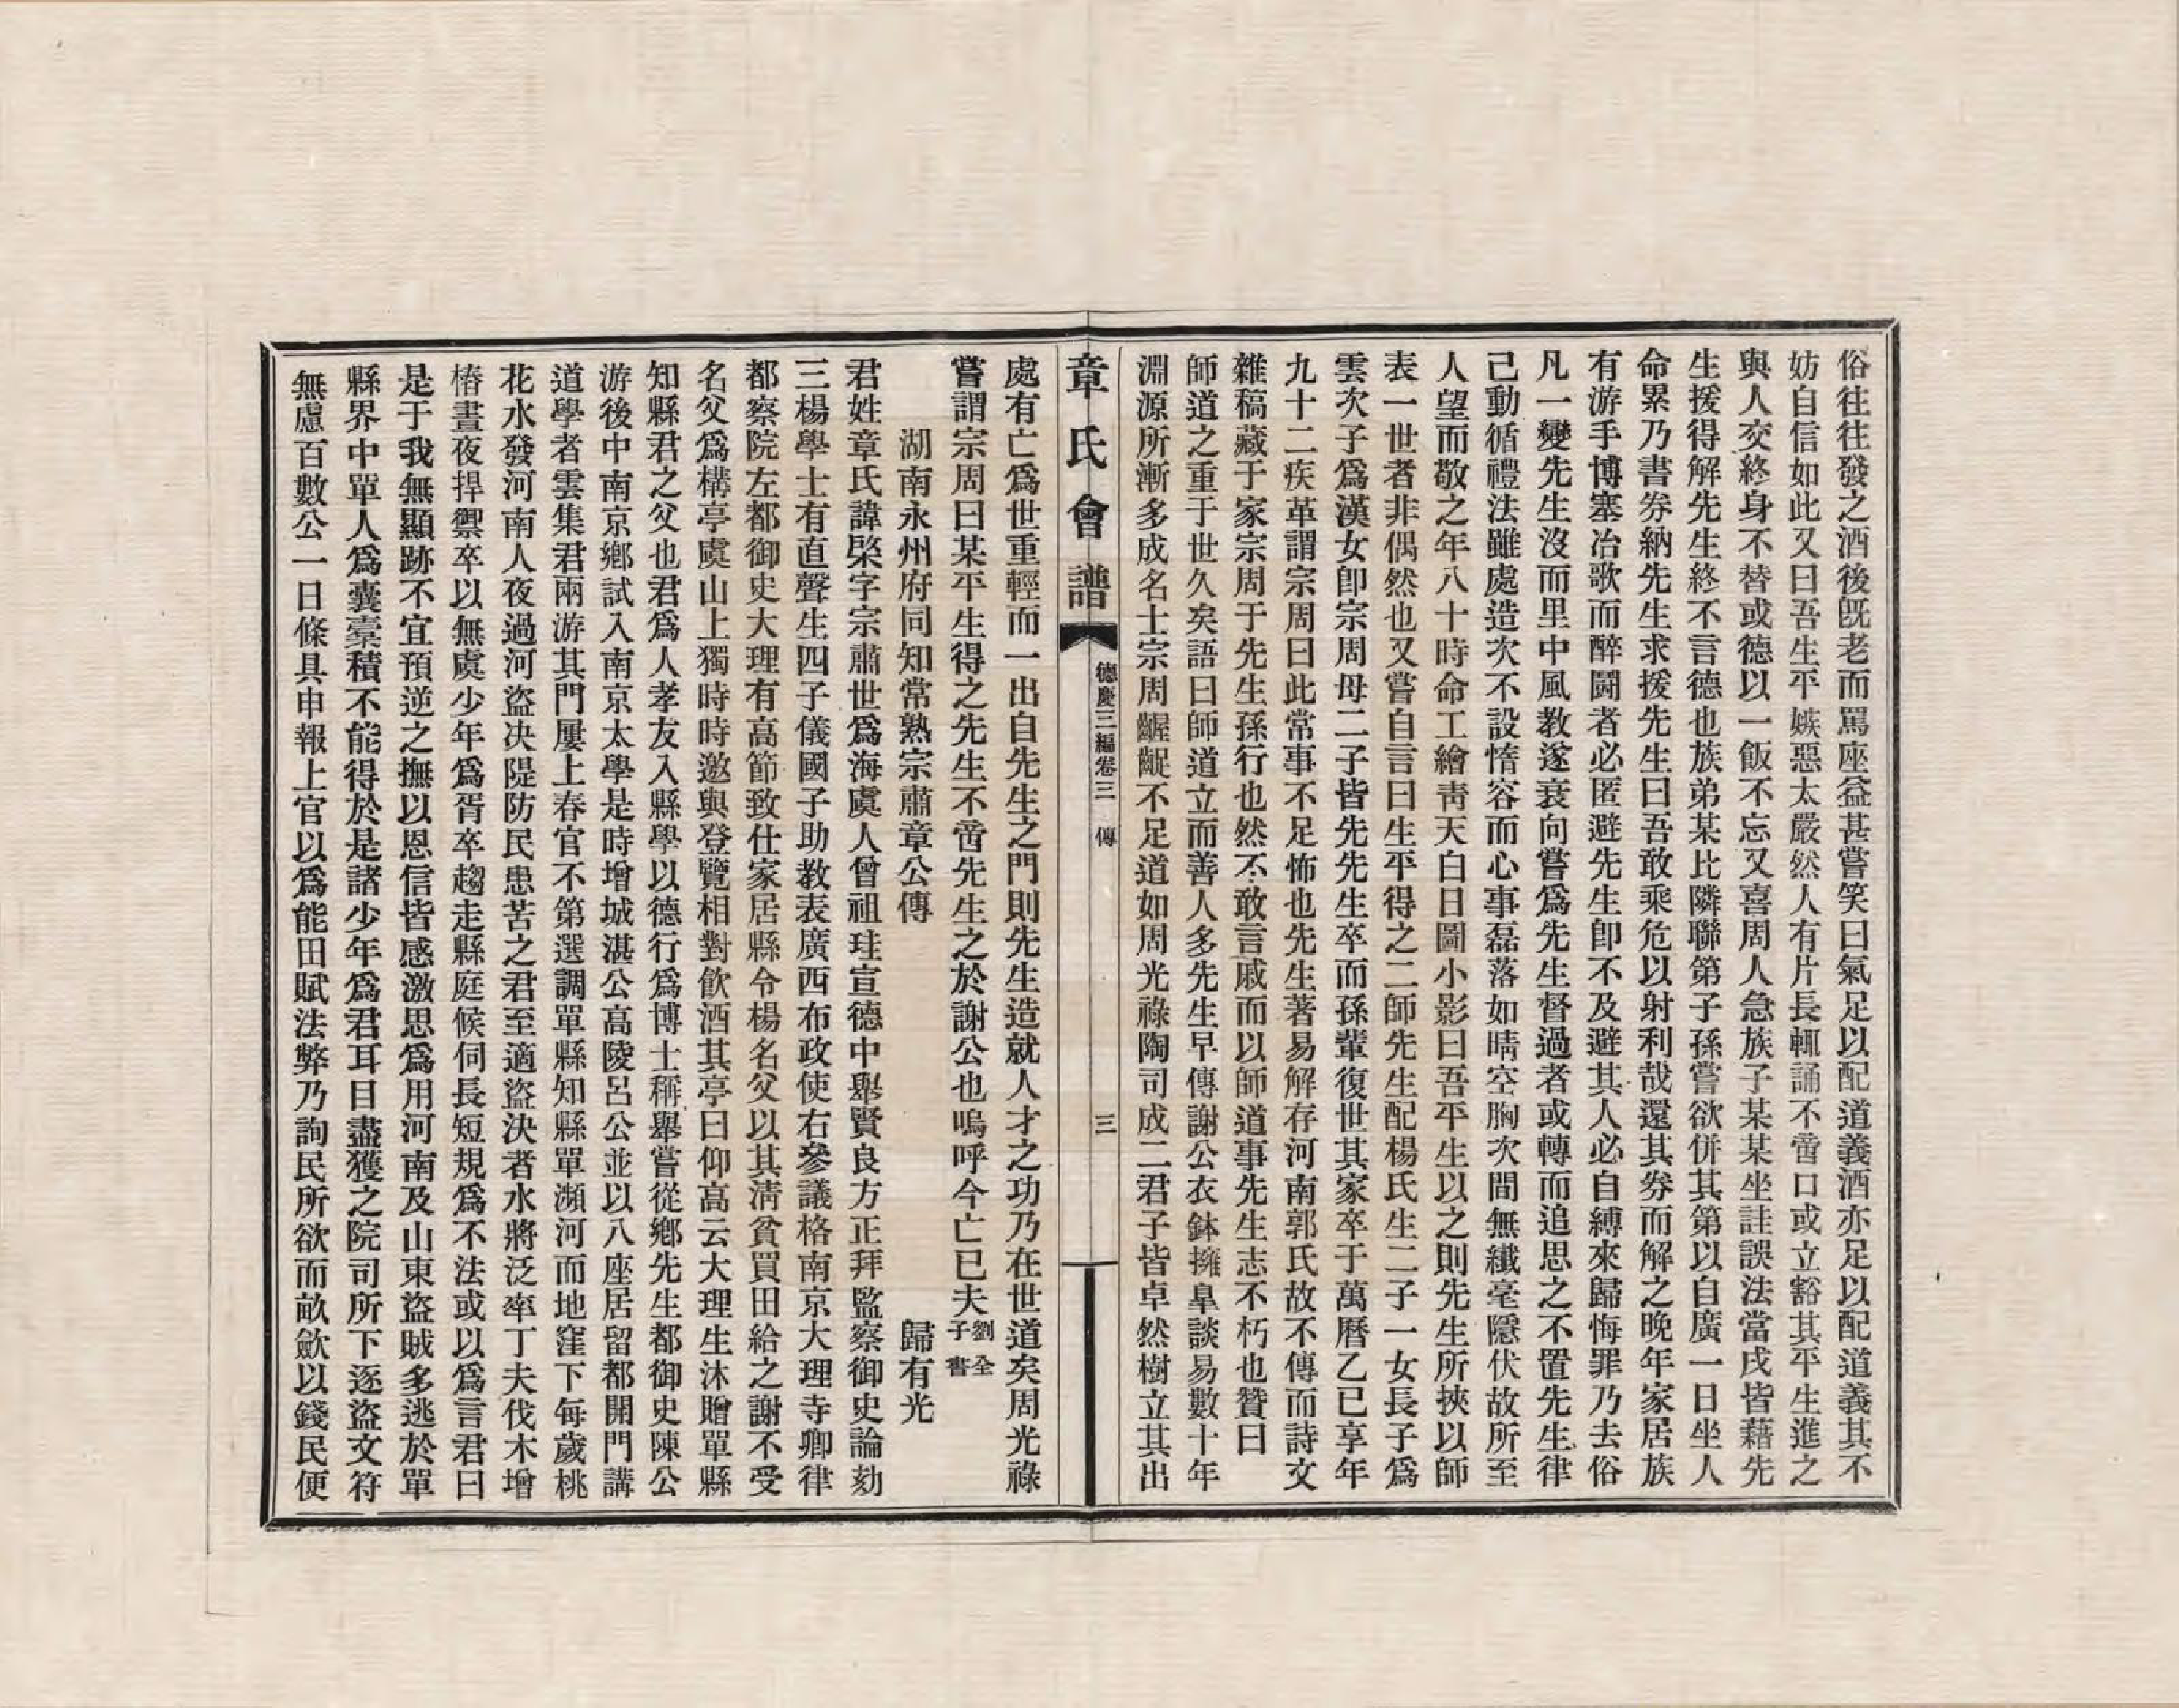 俗往往發之酒後旣老而罵座益甚嘗笑曰氣足以配道義酒亦足以配道義其不
妨自信如此又曰吾生平嫉惡太嚴然人有片長輒誦不啻口或立豁其平生進之
與人交終身不替或德以一飯不忘又喜周人急族子某某坐詿誤法當戍皆藉先
生援得解先生終不言德也族弟某比隣聯第子孫嘗欲併其第以自廣一日坐人
命累乃書券納先生求援先生曰吾敢乘危以射利哉還其券而解之晚年家居族
有游手博塞冶歌而醉鬪者必匿避先生卽不及避其人必自縛來歸悔罪乃去俗
凡一變先生沒而里中風敎遂衰向嘗爲先生督過者或轉而追思之不置先生律
己動循禮法雖處造次不設惰容而心事磊落如晴空胸次間無纖毫隱伏故所至
人望而敬之年八十時命工繪靑天白日圖小影曰吾平生以之則先生所挾以師
表一世者非偶然也又嘗自言曰生平得之二師先生配楊氏生二子一女長子爲
雲次子爲漢女卽宗周母二子皆先先生卒而孫輩復世其家卒于萬曆乙已享年
九十二疾革謂宗周曰此常事不足怖也先生著易解存河南郭氏故不傳而詩文
雜稿藏于家宗周于先生孫行也然不敢言戚而以師道事先生志不朽也贊曰
師道之重于世久矣語曰師道立而善人多先生早傳謝公衣鉢擁臯談易數十年
淵源所漸多成名士宗周齷齪不足道如周光祿陶司成二君子皆卓然樹立其出
章氏會譜
德慶三編卷三 傳
三
處有亡爲世重輕而一出自先生之門則先生造就人才之功乃在世道矣周光祿
嘗謂宗周曰某平生得之先生不啻先生之於謝公也嗚呼今亡已夫劉子全書
湖南永州府同知常熟宗肅章公傳 歸有光
君姓章氏諱棨字宗肅世爲海虞人曾祖珪宣德中舉賢良方正拜監察御史論劾
三楊學士有直聲生四子儀國子助敎表廣西布政使右參議格南京大理寺卿律
都察院左都御史大理有高節致仕家居縣令楊名父以其淸貧買田給之謝不受
名父爲構亭虞山上獨時時邀與登覽相對飮酒其亭曰仰高云大理生沐贈單縣
知縣君之父也君爲人孝友入縣學以德行爲博士稱舉嘗從鄕先生都御史陳公
游後中南京鄕試入南京太學是時增城湛公高陵呂公並以八座居留都開門講
道學者雲集君兩游其門屢上春官不第選調單縣知縣單瀕河而地窪下每歲桃
花水發河南人夜過河盜决隄防民患苦之君至適盜決者水將泛率丁夫伐木增
樁晝夜捍禦卒以無虞少年爲胥卒趨走縣庭候伺長短規爲不法或以爲言君曰
是于我無顯跡不宜預逆之撫以恩信皆感激思爲用河南及山東盜賊多逃於單
縣界中單人爲囊槖積不能得於是諸少年爲君耳目盡獲之院司所下逐盜文符
無慮百數公一日條具申報上官以爲能田賦法弊乃詢民所欲而畝歛以錢民便